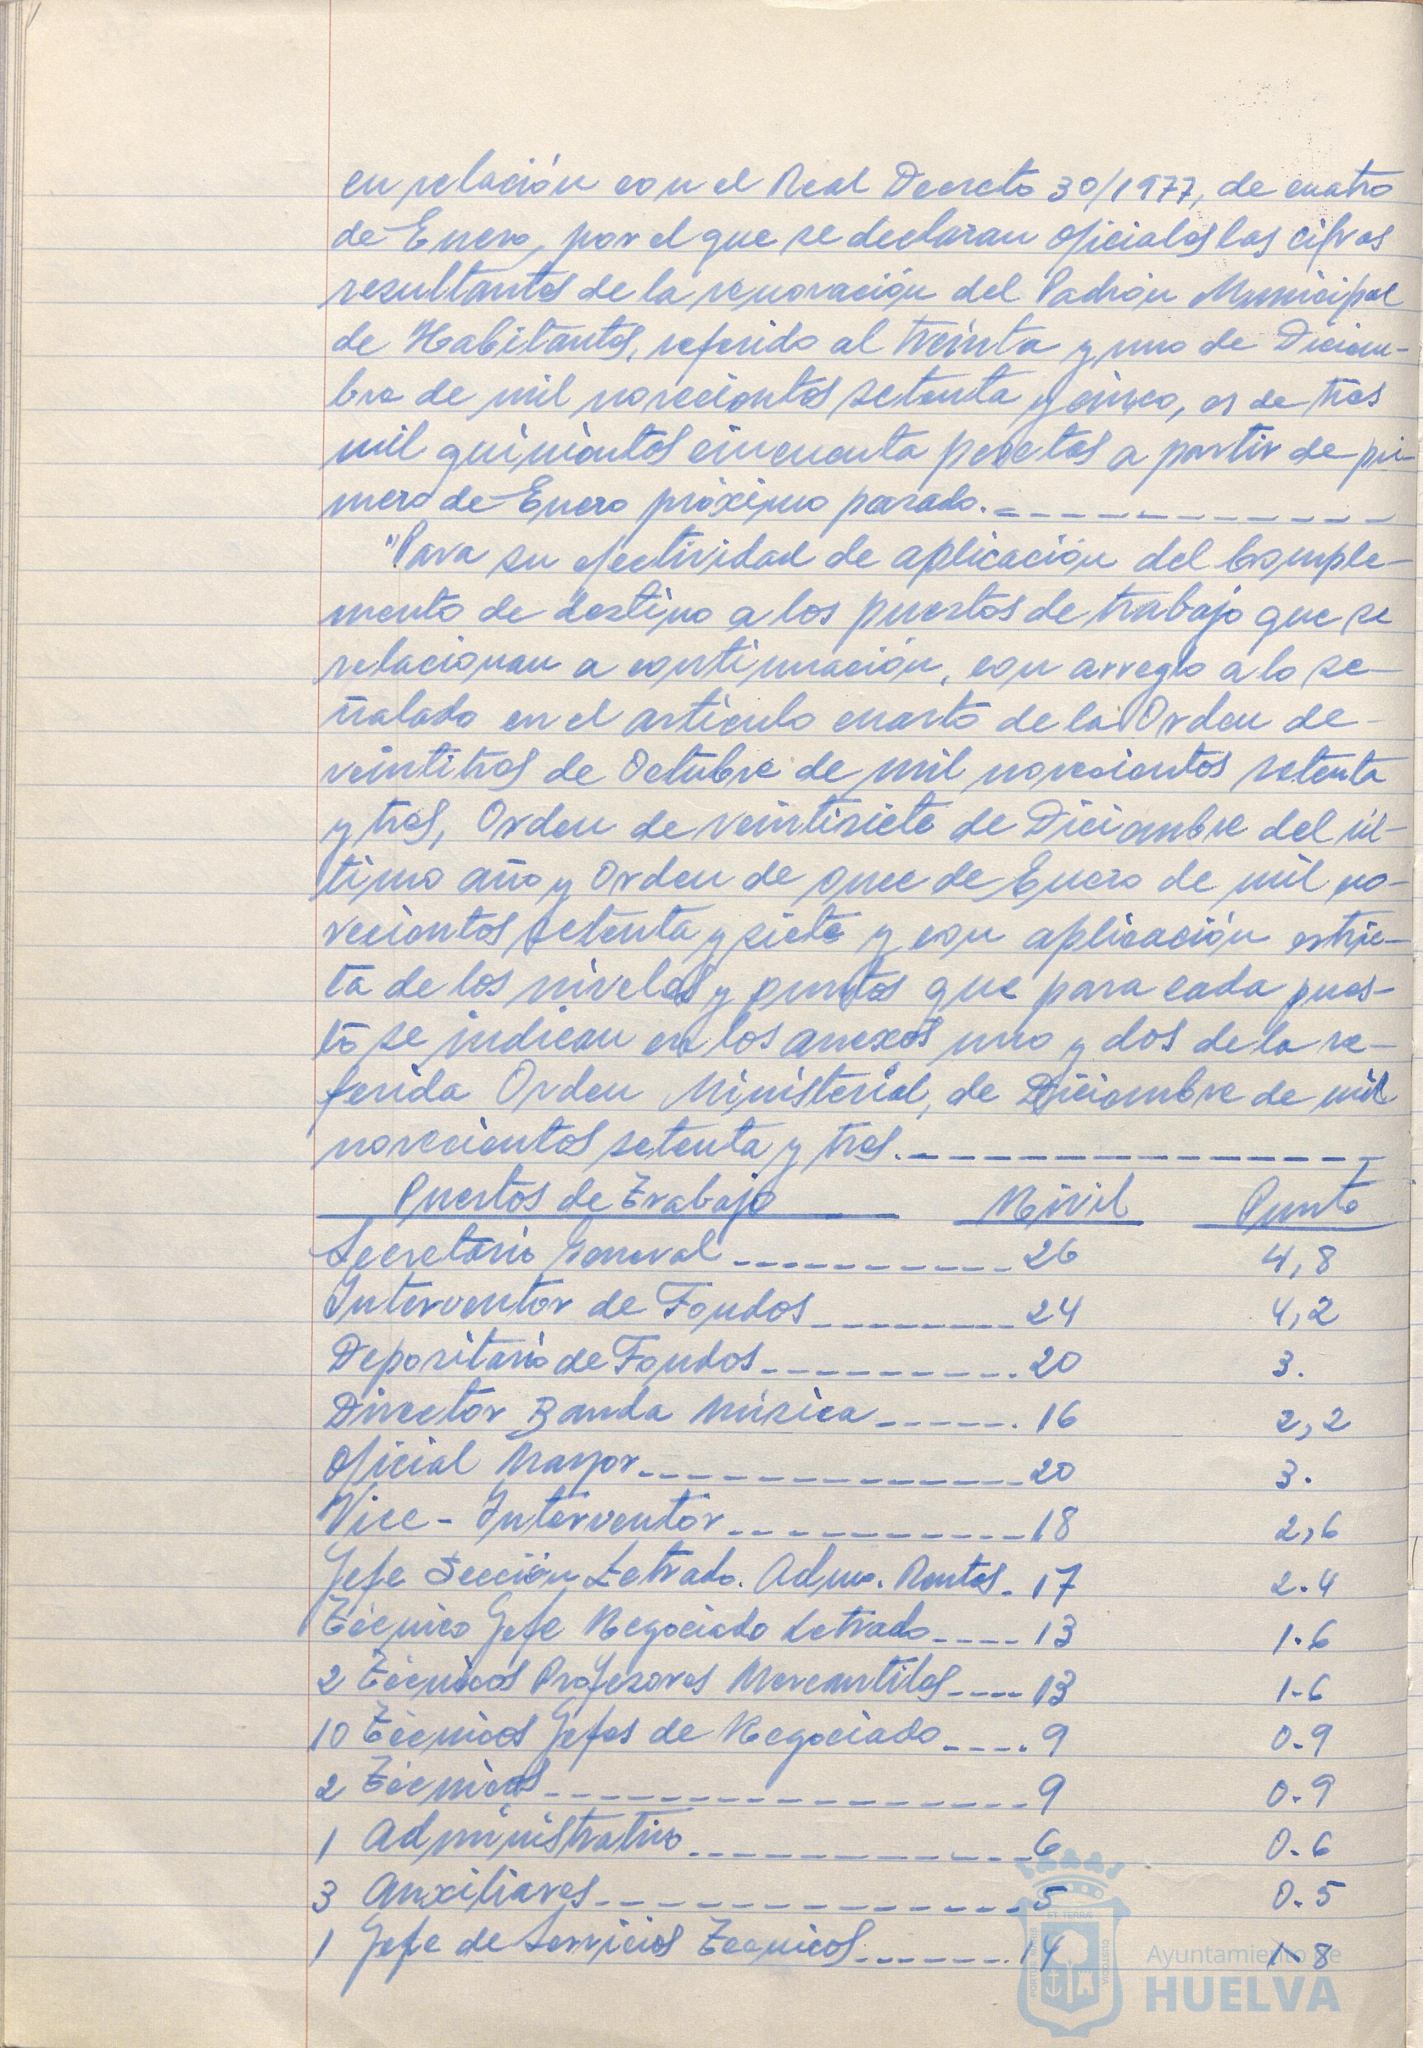 en relación con el Real Decreto 30/1977, de cuatro
de Enero, por el que se declaran oficiales las cifras
resultantes de la renovación del Padrón Municipal
de Habitantes, referido al treinta y uno de Diciem-
bre de mil novecientos setenta y cinco, es de tres
mil quinientos cincuenta pesetas a partir de pri-
mero de Enero próximo pasado.
"Para su efectividad de aplicación del Comple-
mento de destino a los puestos de trabajo que se
relacionan a continuación, con arreglo a lo se-
ñalado en el artículo cuarto de la Orden de
veintitres de Octubre de mil novecientos setenta
y tres, Orden de veintisiete de Diciembre del úl-
timo año y Orden de once de Enero de mil no-
vecientos setenta y siete y con aplicación estric-
ta de los niveles y puntos que para cada pues-
to se indican en los anexos uno y dos de la re-
ferida Orden Ministerial, de Diciembre de mil
novecientos setenta y tres.
Puestos de Trabajo Nivil Punto
Secretario General 26 4,8
Interventor de Fondos 24 4,2
Depositario de Fondos 20 3.
Director Banda Música 16 2,2
Oficial Mayor 20 3.
Vice-Interventor 18 2,6
Jefe Sección Letrado. Admo. Rentas. 17 2.4
Técnico Jefe Negociado Letrado 13 1.6
2 Técnicos Profesores Mercantiles 13 1.6
10 Técnicos Jefes de Negociado 9 0.9
2 Técnicos 9 0.9
1 Administrativo 6 0.6
3 Auxiliares 5 0.5
1 Jefe de Servicios Técnicos 14 1.8
Ayuntamiento de
HUELVA